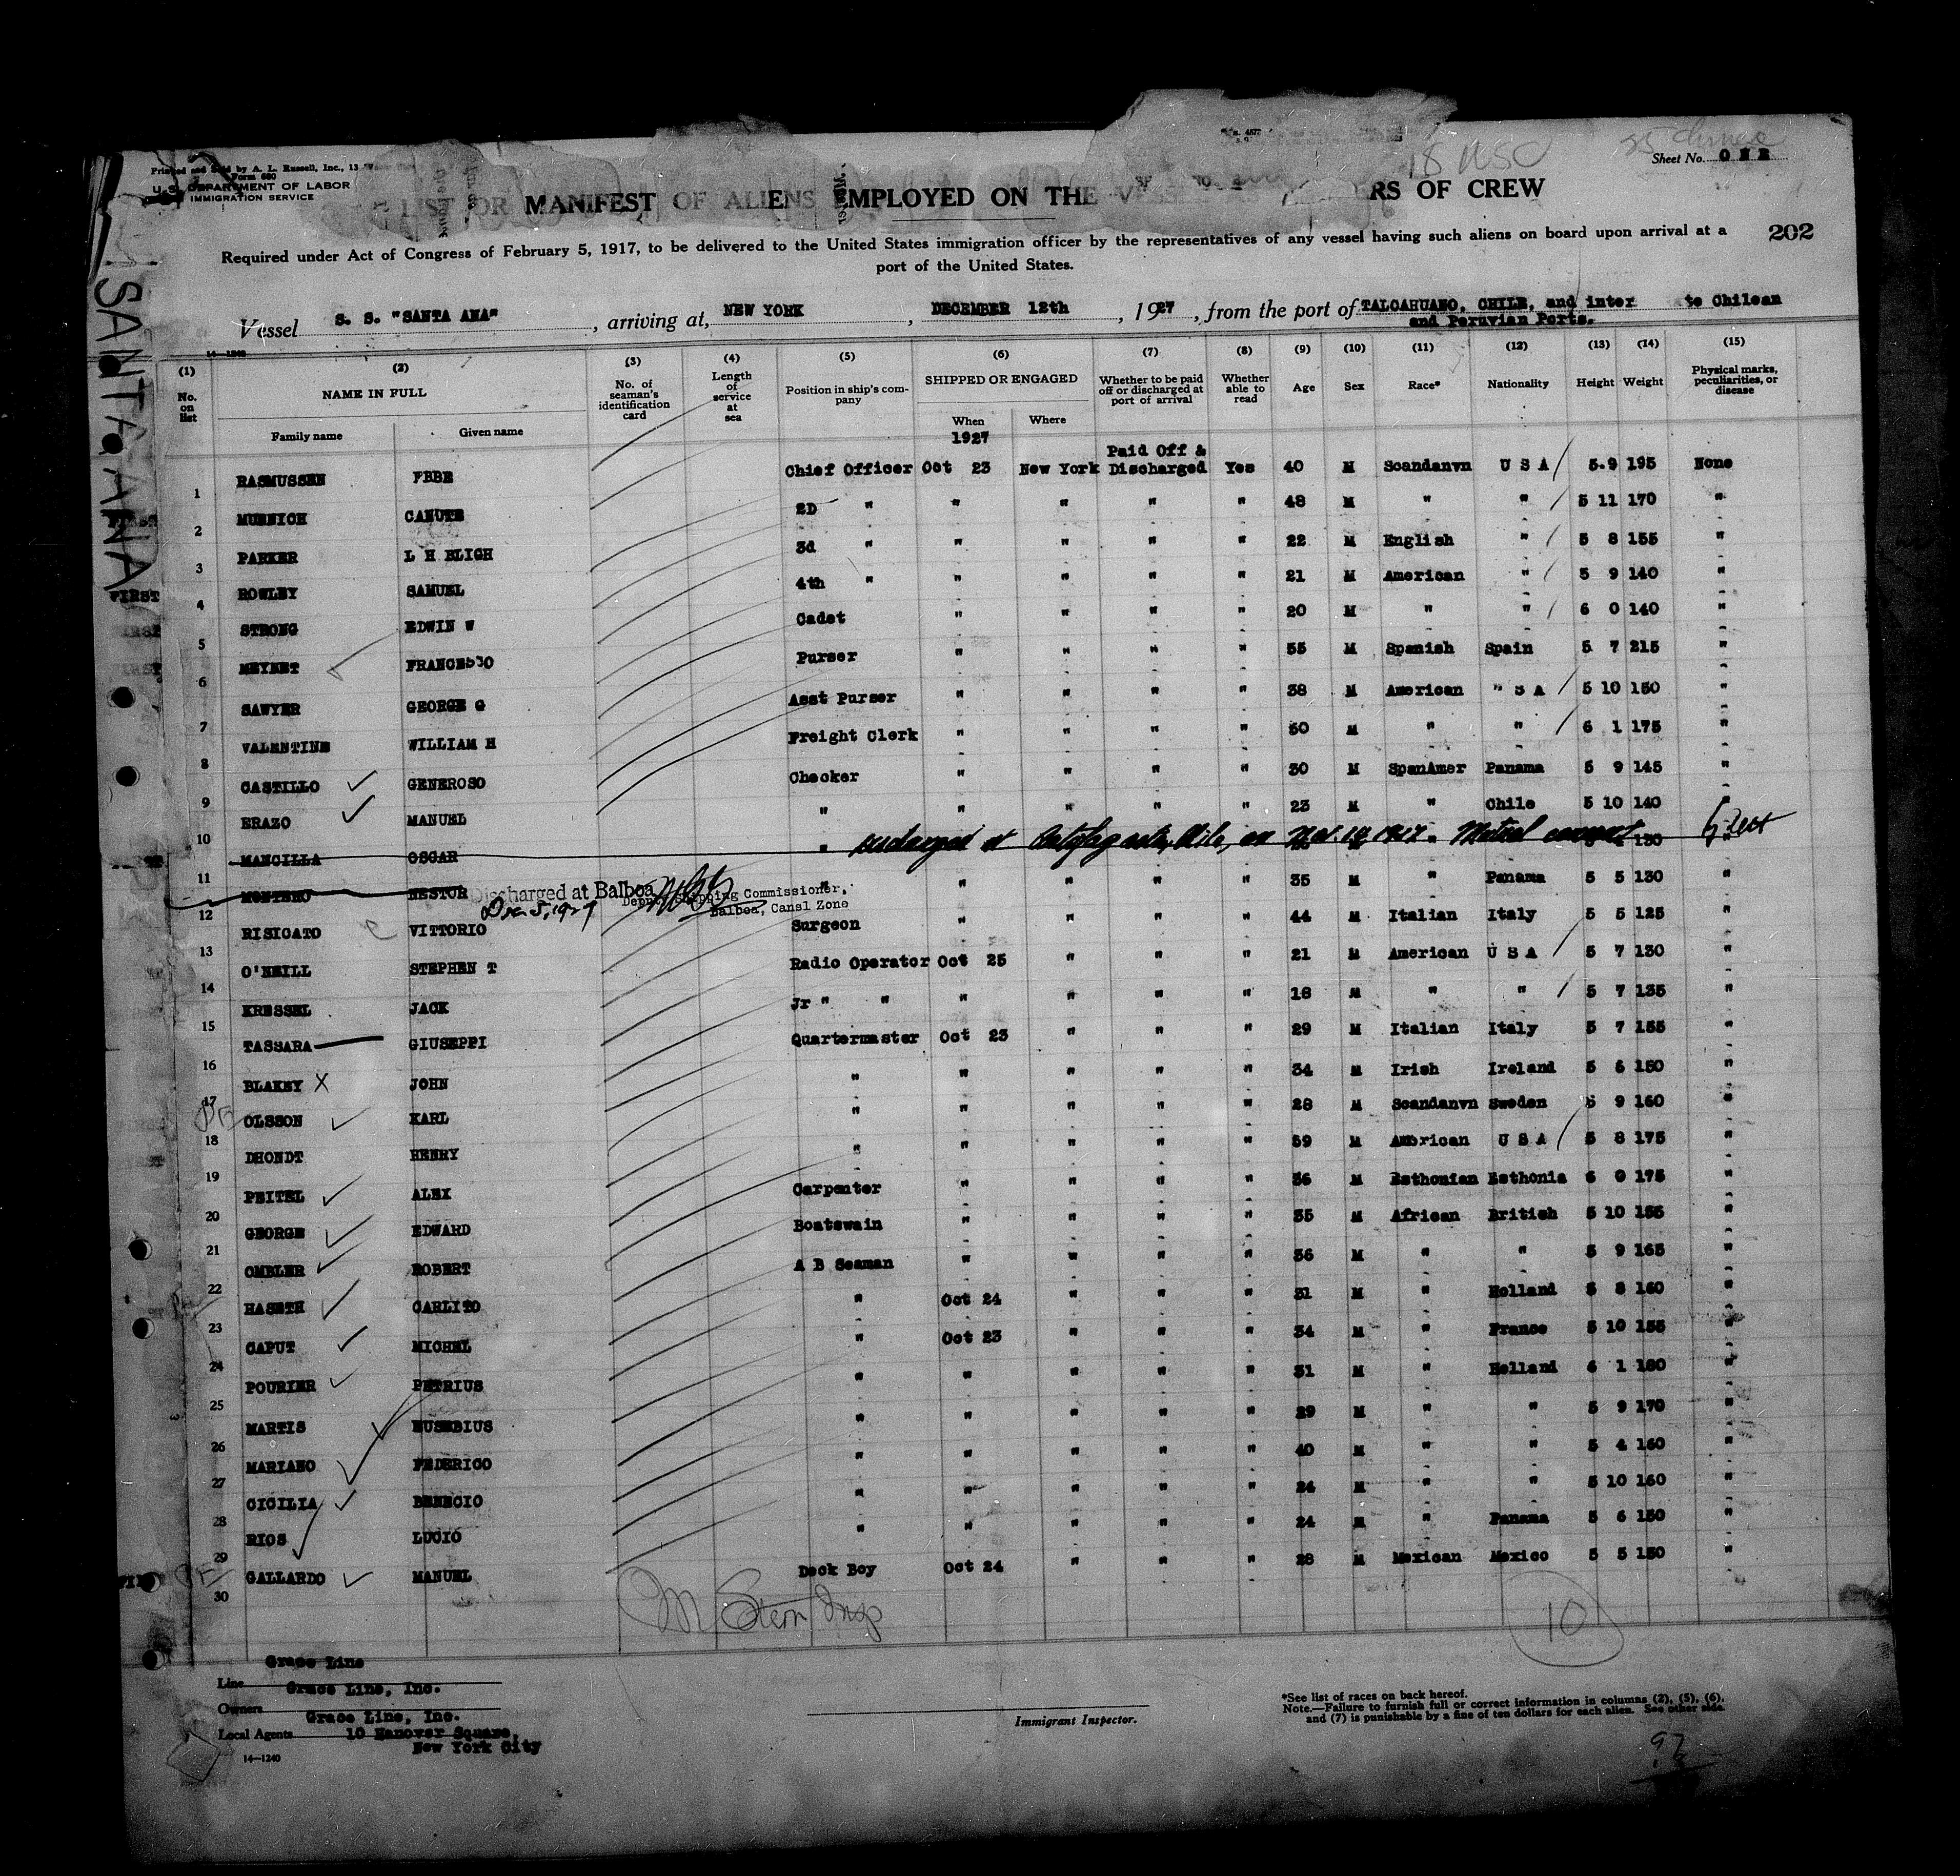 Printed and Sold by A. L. Russell, Inc., 13
Form 680
U. S. DEPARTMENT OF LABOR
IMMIGRATION SERVICE
18 USC
Sheet No. ONE
LIST OR MANIFEST OF ALIENS EMPLOYED ON THE VESSEL RS OF CREW
202
Required under Act of Congress of February 5, 1917, to be delivered to the United States immigration officer by the representatives of any vessel having such aliens on board upon arrival at a
port of the United States.
SANTA ANA
Vessel S. S. "SANTA ANA", arriving at, NEW YORK, DECEMBER 12th, 1927, from the port of TALCAHUANO, CHILE, and inter to Chilean
and Peruvian Ports.
14—1240
(1) (2) (3) (4) (5) (6) (7) (8) (9) (10) (11) (12) (13) (14) (15)
No. on list NAME IN FULL No. of seaman's identification card Length of service at sea Position in ship's company SHIPPED OR ENGAGED Whether to be paid off or discharged at port of arrival Whether able to read Age Sex Race* Nationality Height Weight Physical marks, peculiarities, or disease
Family name Given name When Where
1927
1 RASMUSSEN EBBE Chief Officer Oct 23 New York Paid Off & Discharged Yes 40 M Scandanvn U S A 5.9 195 None
2 MUENICH CANUTE 2D " " " " " 48 M " " 5 11 170 "
3 PARKER L H BLIGH 3d " " " " " 22 M English " 5 8 155 "
4 ROWLEY SAMUEL 4th " " " " " 21 M American " 5 9 140 "
5 STRONG EDWIN W Cadet " " " " 20 M " " 6 0 140 "
6 MEYNET FRANCESCO Purser " " " " 55 M Spanish Spain 5 7 215 "
7 SAWYER GEORGE G Asst Purser " " " " 38 M American " S A 5 10 150 "
8 VALENTINE WILLIAM H Freight Clerk " " " " 50 M " " 6 1 175 "
9 CASTILLO GENEROSO Checker " " " " 30 M SpanAmer Panama 5 9 145 "
10 ERAZO MANUEL " " " " " 23 M " Chile 5 10 140 "
11 MANCILLA OSCAR " discharged at Antofagasta, Chile, on Nov. 14, 1927. Mutual consent 130
12 MONTERO NESTOR " " " " " 35 M " Panama 5 5 130 "
Discharged at Balboa
Dec. 5, 1927
Deputy Shipping Commissioner,
Balboa, Canal Zone
13 RISICATO VITTORIO Surgeon " " " " 44 M Italian Italy 5 5 125 "
14 O'NEILL STEPHEN T Radio Operator Oct 25 " " " 21 M American U S A 5 7 130 "
15 KRESSEL JACK Jr " " " " " " 18 M " " 5 7 135 "
16 TASSARA GIUSEPPI Quartermaster Oct 23 " " " 29 M Italian Italy 5 7 155 "
17 BLAKEY X JOHN " " " " " 34 M Irish Ireland 5 6 150 "
18 OLSSON KARL " " " " " 28 M Scandanvn Sweden 5 9 160 "
19 DHONDT HENRY " " " " " 59 M American U S A 5 8 175 "
20 PEITEL ALEX Carpenter " " " " 36 M Esthonian Esthonia 6 0 175 "
21 GEORGE EDWARD Boatswain " " " " 35 M African British 5 10 155 "
22 OMBLER ROBERT A B Seaman " " " " 36 M " " 5 9 165 "
23 HASETH CARLITO " Oct 24 " " " 31 M " Holland 5 8 160 "
24 CAPUT MICHEL " Oct 23 " " " 34 M " France 5 10 155 "
25 POURIER PETRIUS " " " " " 31 M " Holland 6 1 180 "
26 MARTIS EUSEBIUS " " " " " 29 M " " 5 9 170 "
27 MARIANO FEDERICO " " " " " 40 M " " 5 4 160 "
28 CICILIA BENECIO " " " " " 24 M " " 5 10 160 "
29 RIOS LUCIO " " " " " 24 M " Panama 5 6 150 "
30 GALLARDO MANUEL Deck Boy Oct 24 " " " 28 M Mexican Mexico 5 5 150 "
M Stern Insp
10
Line Grace Line
Owners Grace Line, Inc.
Local Agents Grace Line, Inc.
10 Hanover Square,
New York City
14—1240
Immigrant Inspector.
*See list of races on back hereof.
Note.—Failure to furnish full or correct information in columns (2), (5), (6),
and (7) is punishable by a fine of ten dollars for each alien. See other side.